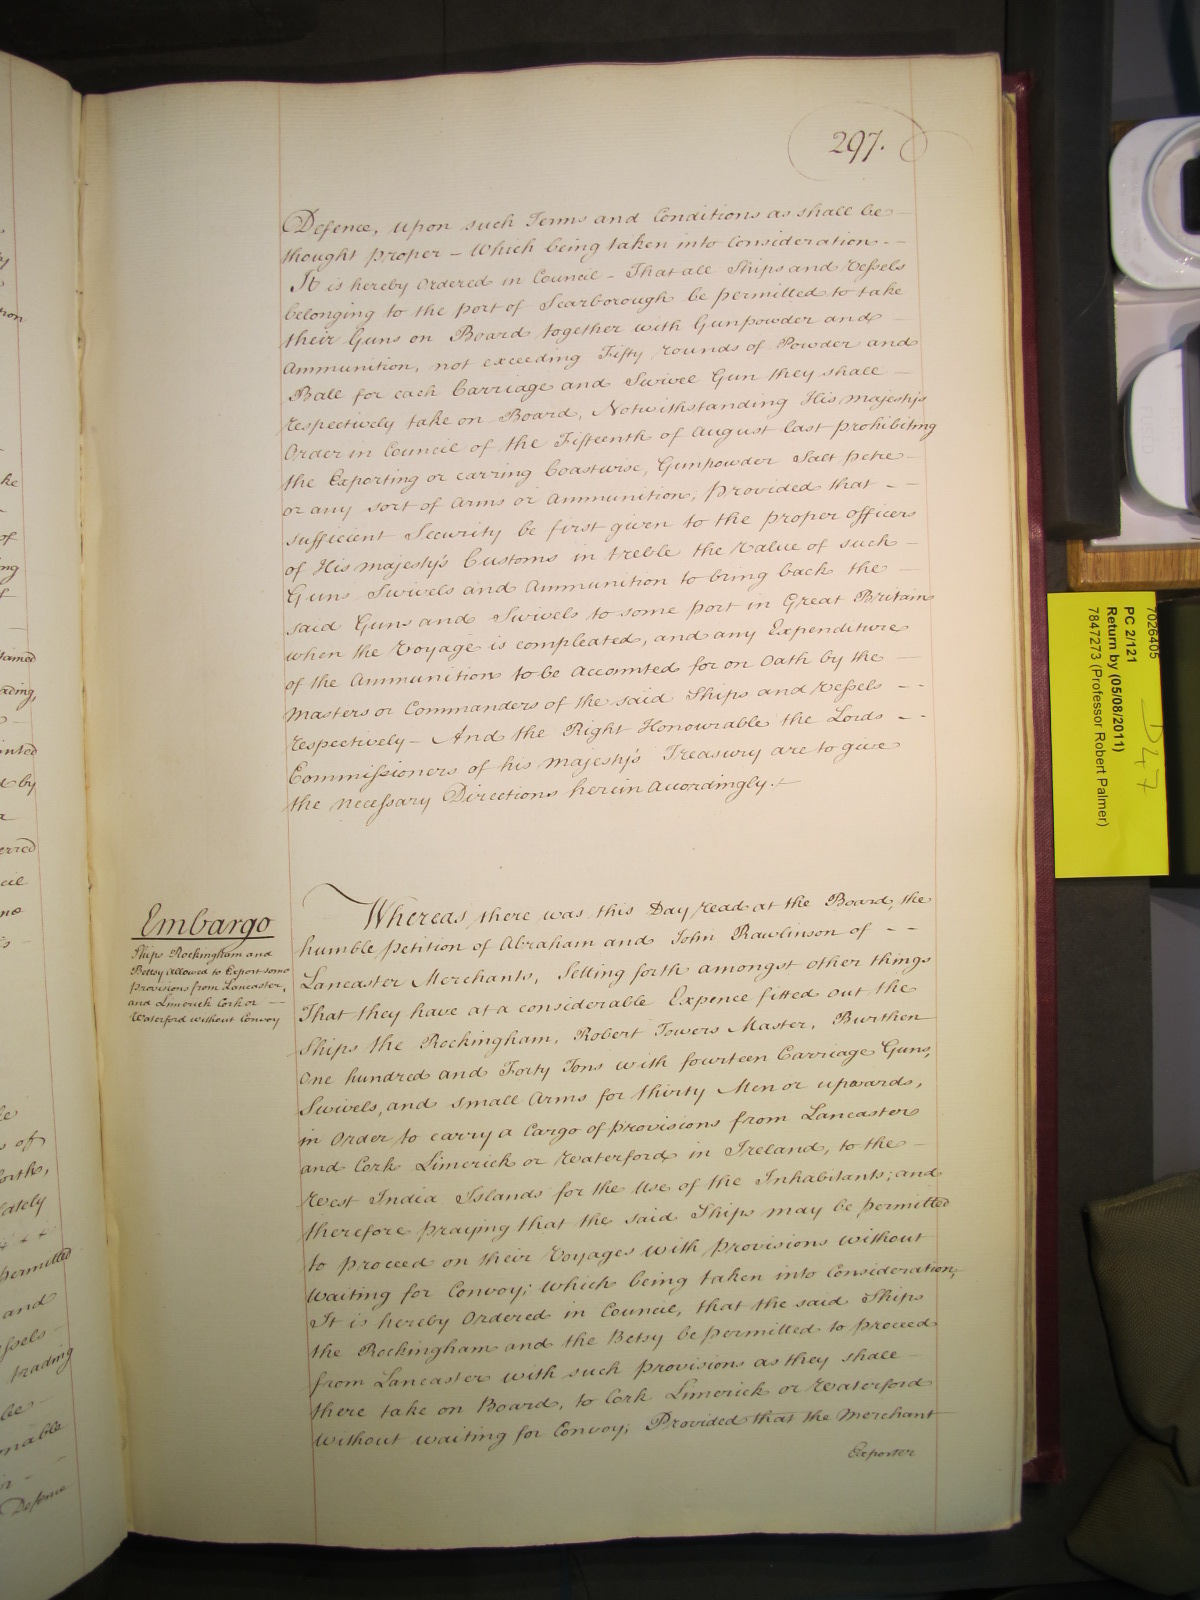 297.
Defence, upon such Terms and Conditions as shall be
thought proper - Which being taken into Consideration. -
It is hereby Ordered in Council - That all Ships and Vessels
belonging to the port of Scarborough be permitted to take
their Guns on Board together with Gunpowder and
Ammunition, not exceeding Fifty rounds of Powder and
Ball for each Carriage and Swivel Gun they shall
respectively take on Board, Notwithstanding His majesty's
Order in Council of the Fifteenth of August last prohibiting
the Exporting or carring Coastwise, Gunpowder Salt petre
or any sort of Arms or Ammunition, provided that - -
sufficient Security be first given to the proper officers
of His majesty's Customs in treble the Value of such
Guns Swivels and Ammunition to bring back the
said Guns and Swivels to some port in Great Britain
when the Voyage is compleated, and any Expenditure
of the Ammunition to be Accounted for on Oath by the
Masters or Commanders of the said Ships and Vessels - -
respectively - And the Right Honourable the Lords - -
Commissioners of his majesty's Treasury are to give
the necessary Directions herein accordingly. -
Embargo
Ships Rockingham and
Bettsy allowed to Export some
provisions from Lancaster,
and Limerick Cork or
Waterford without Convoy
Whereas there was this Day read at the Board, the
humble petition of Abraham and John Rawlinson of - -
Lancaster Merchants, Setting forth amongst other things
That they have at a considerable Expence fitted out the
Ships the Rockingham, Robert Towers Master, Burthen
One hundred and Forty Tons with fourteen Carriage Guns,
Swivels, and small Arms for thirty Men or upwards,
in Order to carry a Cargo of provisions from Lancaster
and Cork Limerick or Waterford in Ireland, to the
West India Islands for the Use of the Inhabitants; and
therefore praying that the said Ships may be permitted
to proceed on their Voyages with provisions without
waiting for Convoy; which being taken into Consideration,
It is hereby Ordered in Council, that the said Ships
the Rockingham and the Betsy be permitted to proceed
from Lancaster with such provisions as they shall
there take on Board, to Cork Limerick or Waterford
without waiting for Convoy; Provided that the Merchant
Exporter
7026405
PC 2/121
Return by (05/08/2011)
7847273 (Professor Robert Palmer)
D47